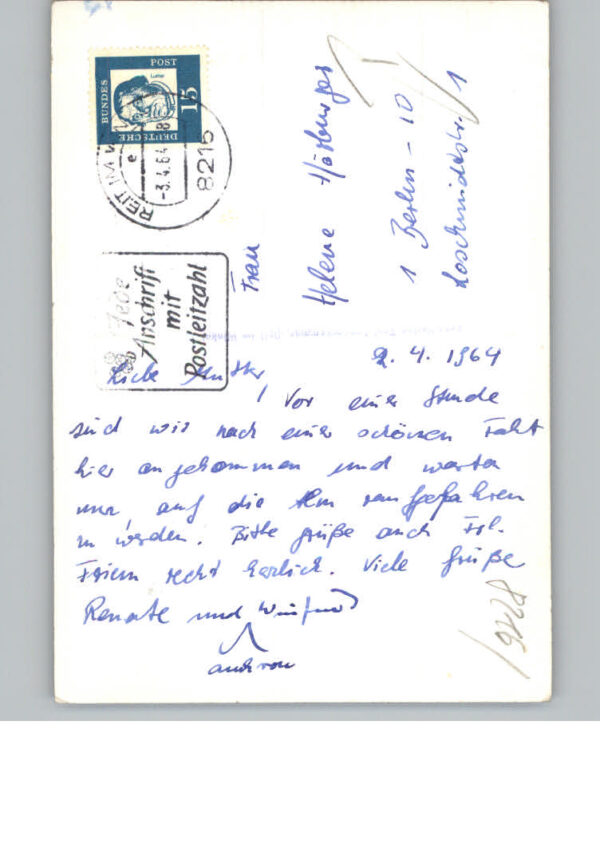 DEUTSCHE
BUNDES
POST
Luther
15
REIT IM W
e
-3.4.64.-8
8216
Jede
Anschrift
mit
Postleitzahl
Frau
Helene
1 Berlin - 10
Loschmidtstr. 1
2. 4. 1964
Liebe Mutter,
Vor einer Stunde
sind wir nach einer schönen Fahrt
hier angekommen und warten
nur, auf die Alm raufgefahren
zu werden. Bitte grüße auch Frl.
recht herzlich. Viele Grüße
Renate und Winfried
auch von
8216